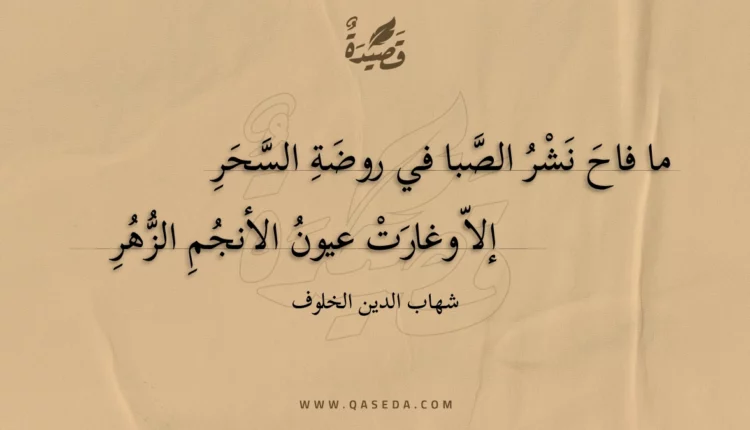 قَصِيْدَةٌ
ما فاحَ نَشْرُ الصَّبا في روضَةِ السَّحَرِ
إلاّ وغارَتْ عيونُ الأنجُمِ الزُّهُرِ
شهاب الدين الخلوف
WWW.QASEDA.COM